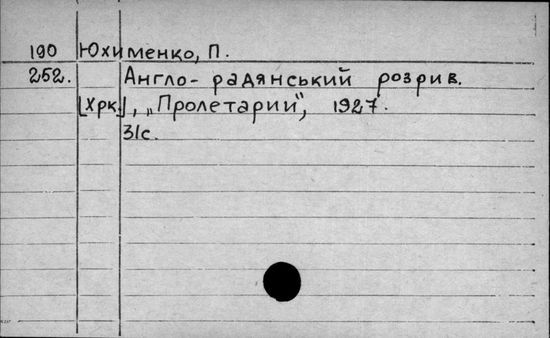 190 Юхименко, П.
252. Англо-радянський розрив.
[Хрк.], „Пролетарий", 1927.
31с.